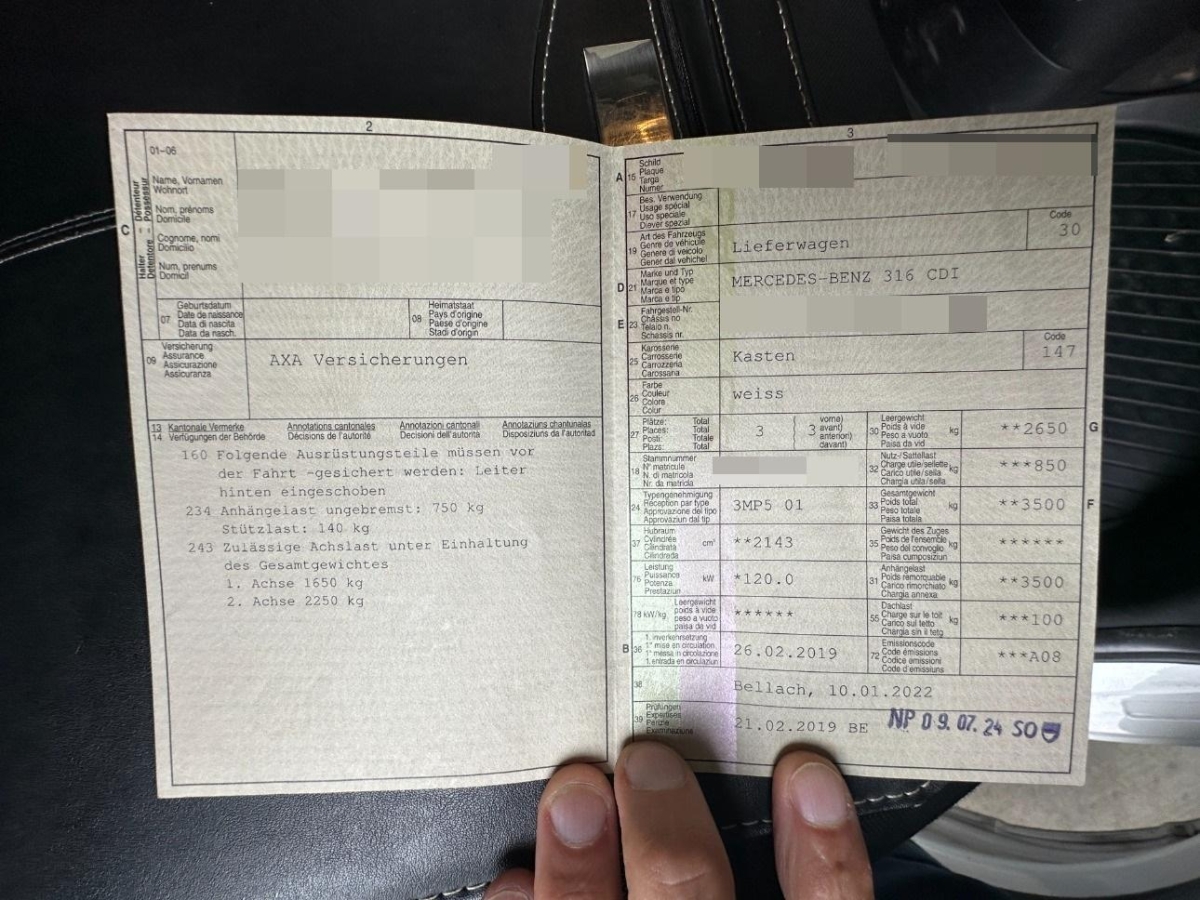 2
01-06
C
Halter - Détenteur
Detentore - Possessur
Name, Vornamen
Wohnort
Nom, prénoms
Domicile
Cognome, nomi
Domicilio
Num, prenums
Domicil
07
Geburtsdatum
Date de naissance
Data di nascita
Data da nasch.
08
Heimatstaat
Pays d'origine
Paese d'origine
Stadi d'origin
09
Versicherung
Assurance
Assicurazione
Assicuranza
AXA Versicherungen
13 Kantonale Vermerke Annotations cantonales Annotazioni cantonali Annotaziuns chantunalas
14 Verfügungen der Behörde Décisions de l'autorité Decisioni dell'autorità Disposiziuns da l'autoritad
160 Folgende Ausrüstungsteile müssen vor
der Fahrt -gesichert werden: Leiter
hinten eingeschoben
234 Anhängelast ungebremst: 750 kg
Stützlast: 140 kg
243 Zulässige Achslast unter Einhaltung
des Gesamtgewichtes
1. Achse 1650 kg
2. Achse 2250 kg
3
A 15
Schild
Plaque
Targa
Numer
17
Bes. Verwendung
Usage spécial
Uso speciale
Diever spezial
19
Art des Fahrzeugs
Genre de véhicule
Genere di veicolo
Gener dal vehichel
Lieferwagen
Code
30
D 21
Marke und Typ
Marque et type
Marca e tipo
Marca e tip
MERCEDES-BENZ 316 CDI
E 23
Fahrgestell-Nr.
Châssis no
Telaio n.
Schassis nr.
25
Karosserie
Carrosserie
Carrozzeria
Carossaria
Kasten
Code
147
26
Farbe
Couleur
Colore
Colur
weiss
27
Plätze: Total
Places: Total
Posti: Totale
Plazs: Total
3
3
vorne)
avant)
anteriori)
davant)
30
Leergewicht
Poids à vide
Peso a vuoto
Paisa da vid
kg
**2650
G
18
Stammnummer
N° matricule
N. di matricola
Nr. da matricla
32
Nutz-/Sattellast
Charge utile/sellette
Carico utile/sella
Chargia utila/sella
kg
***850
24
Typengenehmigung
Réception par type
Approvazione del tipo
Approvaziun dal tip
3MP5 01
33
Gesamtgewicht
Poids total
Peso totale
Paisa totala
kg
**3500
F
37
Hubraum
Cylindrée
Cilindrata
Cilindrada
cm³
**2143
35
Gewicht des Zuges
Poids de l'ensemble
Peso del convoglio
Paisa cumposiziun
kg
******
76
Leistung
Puissance
Potenza
Prestaziun
kW
*120.0
31
Anhängelast
Poids remorquable
Carico rimorchiato
Chargia annexa
kg
**3500
78 kW/kg
Leergewicht
poids à vide
peso a vuoto
paisa da vid
******
55
Dachlast
Charge sur le toit
Carico sul tetto
Chargia sin il tetg
kg
***100
B 36
1. Inverkehrsetzung
1re mise en circulation
1a messa in circolazione
1. entrada en circulaziun
26.02.2019
72
Emissionscode
Code émissions
Codice emissioni
Code d'emissiuns
***A08
38
Bellach, 10.01.2022
39
Prüfungen
Expertises
Perizie
Examinaziuns
21.02.2019 BE
NP 09.07.24 SO